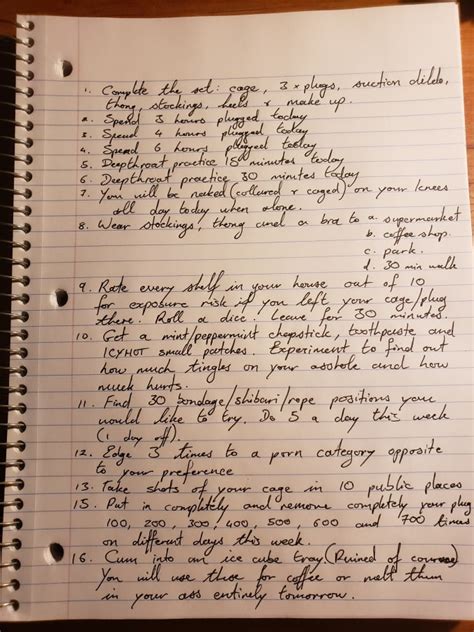 1. Complete the set: cage, 3 x plugs, suction dildo,
thong, stockings, heels & make up.
2. Spend 3 hours plugged today
3. Spend 4 hours plugged today
4. Spend 6 hours plugged today
5. Deepthroat practice 15 minutes today
6. Deepthroat practice 30 minutes today
7. You will be naked (collured & caged) on your knees
all day today when alone.
8. Wear stockings, thong and a bra to a supermarket
b. coffee shop.
c. park.
d. 30 min walk
9. Rate every shelf in your house out of 10
for exposure risk if you left your cage/plug
there. Roll a dice. Leave for 30 minutes
10. Get a mint/peppermint chapstick, toothpaste and
ICYHOT small patches. Experiment to find out
how much tingles on your asshole and how
much hurts.
11. Find 30 bondage/shibari/rope positions you
would like to try. Do 5 a day this week
(1 day off).
12. Edge 3 times to a porn category opposite
to your preference
13. Take shots of your cage in 10 public places
15. Put in completely and remove completely your plug
100, 200, 300, 400, 500, 600 and 700 times
on different days this week.
16. Cum into an ice cube tray. (Ruined of course)
You will use these for coffee or melt them
in your ass entirely tomorrow.